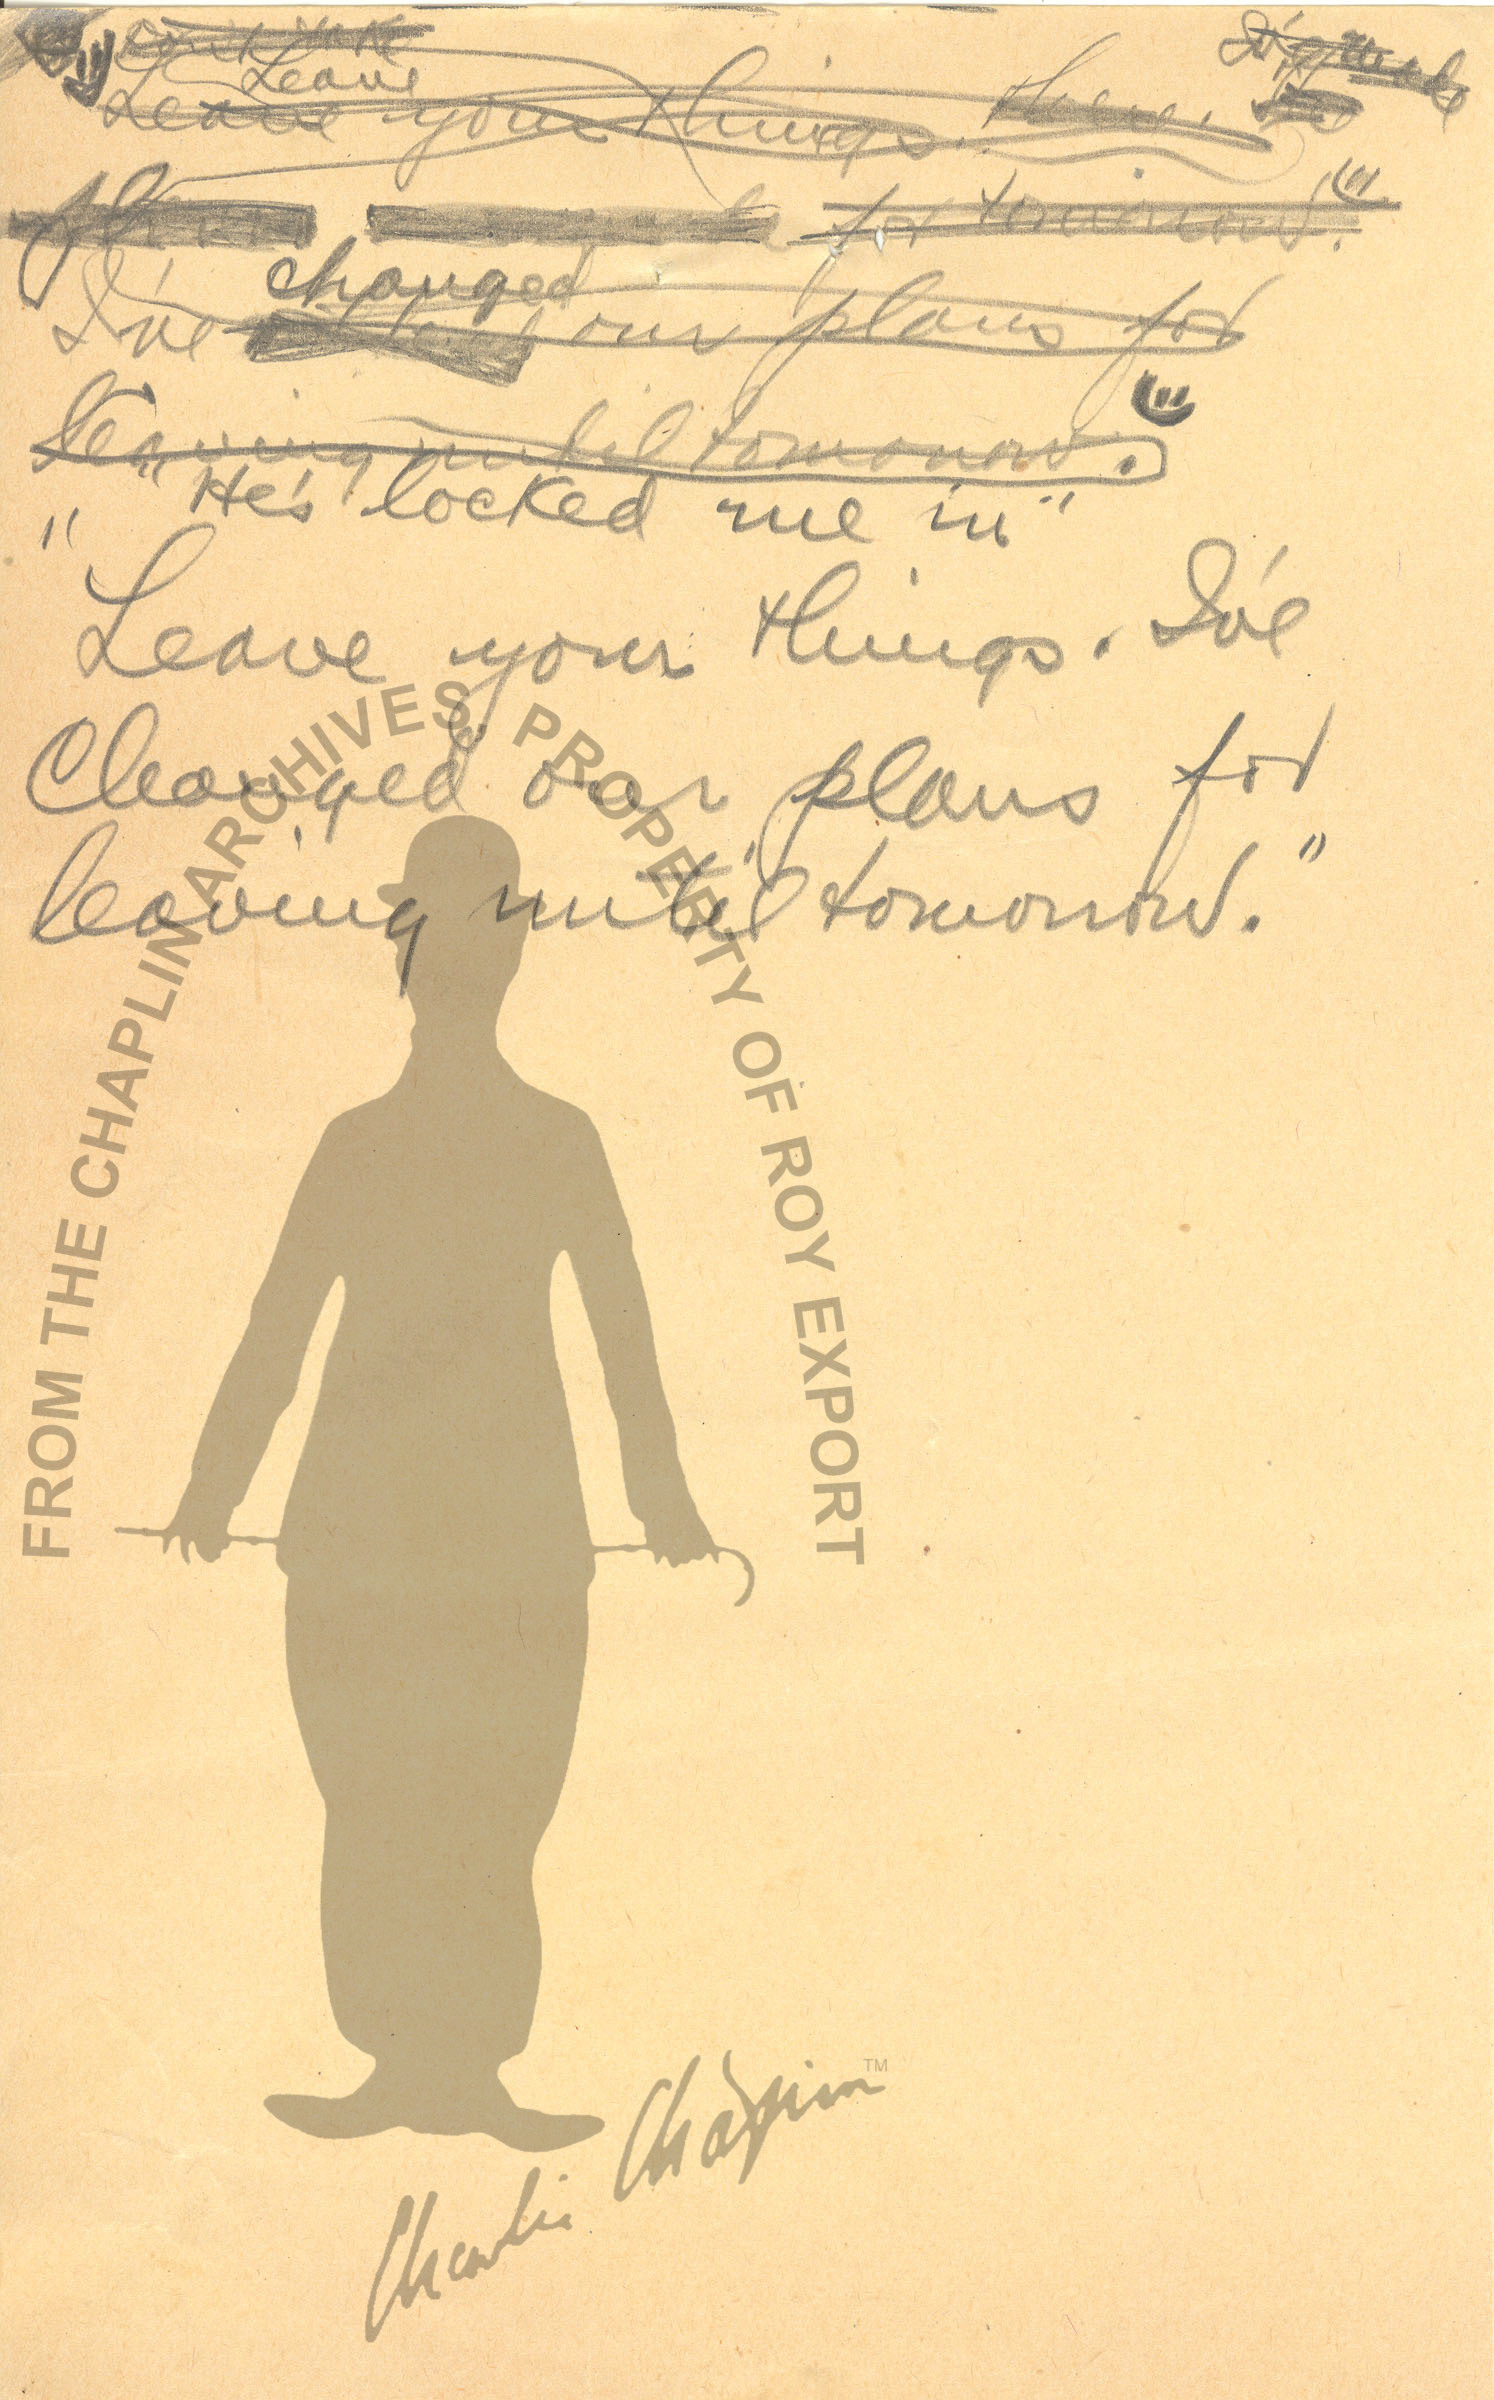 Leave
Leave your things. there. I've made
plans for tomorrow."
changed
I've our plans for
leaving until tomorrow."
"He's locked me in"
"Leave your things. I've
changed our plans for
leaving until tomorrow."
FROM THE CHAPLIN ARCHIVES, PROPERTY OF ROY EXPORT
Charlie Chaplin™